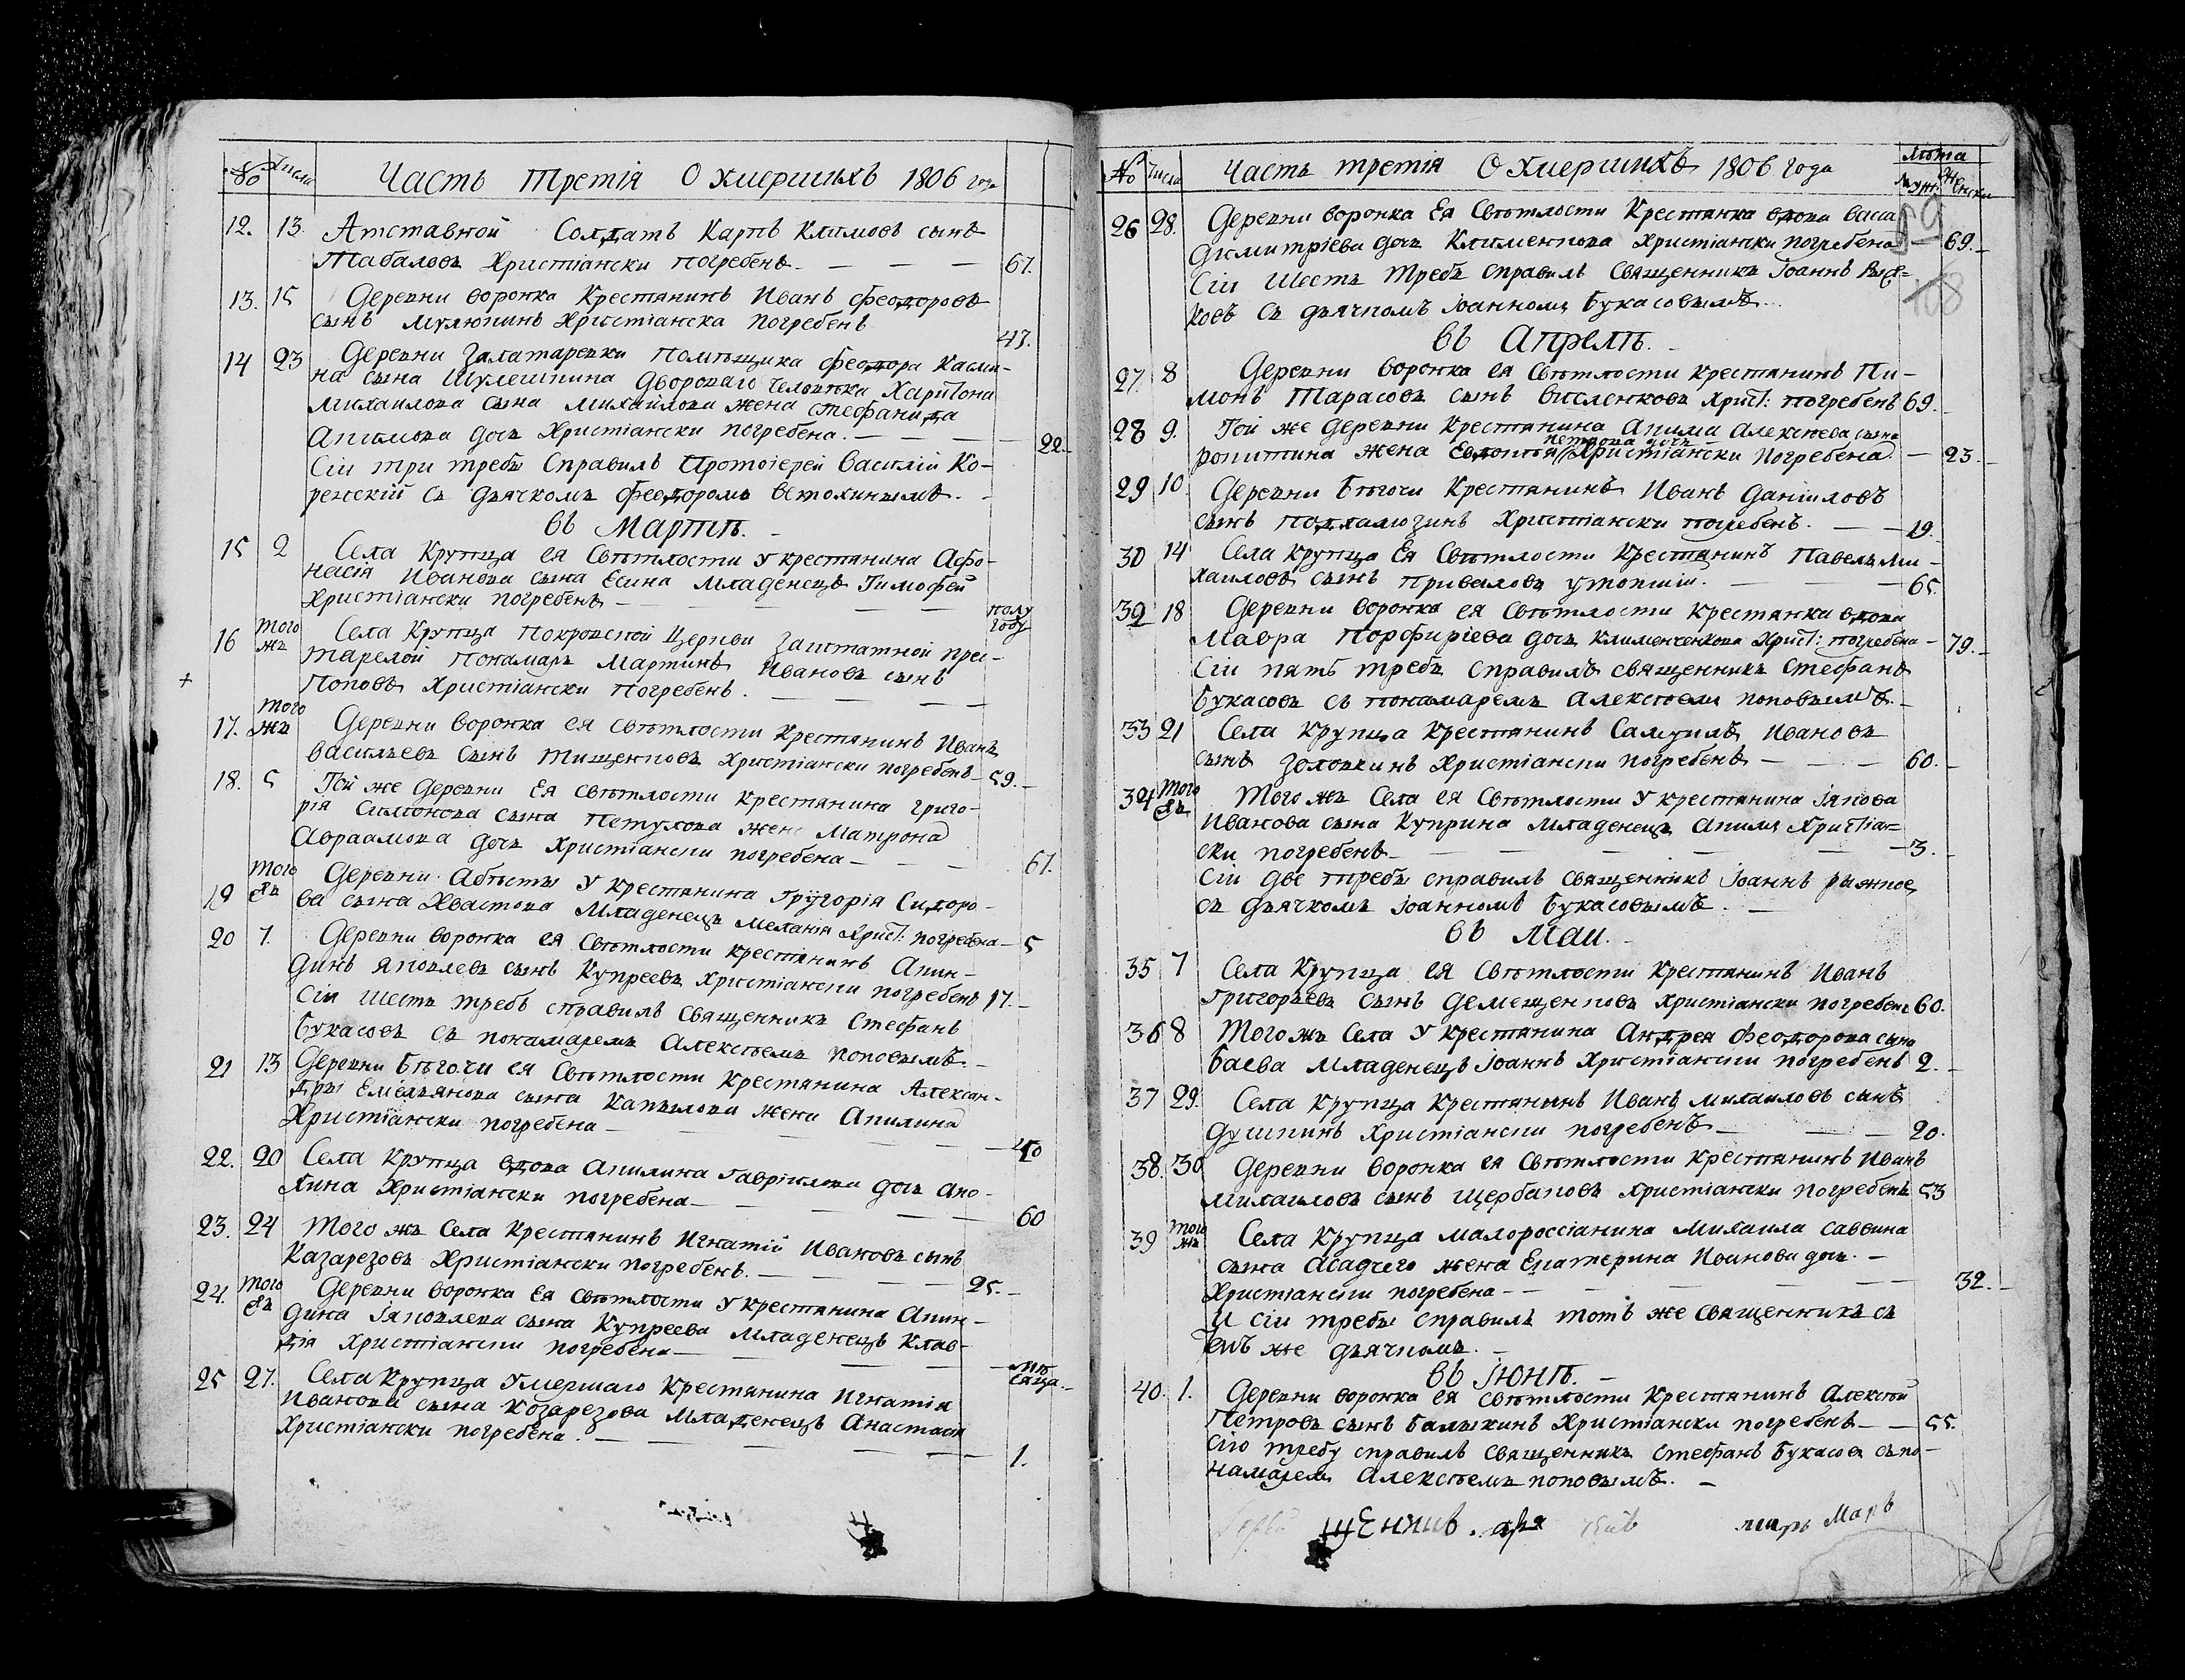 № Числа Часть третія О умершихъ 1806 года
12. 13. Атставной Солдатъ Карпъ Климовъ сынъ
Табаловъ Христіански погребенъ. — — — 67.
13. 15 Деревни воронка Крестянинъ Иванъ Феодоровъ
сынъ Мулюпинъ Христіанска погребенъ 47.
14 23 Деревни Галатаревки Помѣщика Феодора Касми-
на сына Шулешпина Двороваго человѣка Харитона
Михаилова сына Михаилова жена Стефанида
Апимова дочь Христіански погребена. — — — 22.
Сіи три требы Справилъ Протоіерей Василій Ко-
ренскій съ дьячкомъ Феодоромъ Ветохинымъ. -
въ Мартѣ. -
15 2 Села Крупца ея Свѣтлости у крестянина Афо-
насія Иванова сына Есина младенецъ Тимофей
Христіански погребенъ — — — — полу году
16 того жъ Села Крупца Покровской Церкви Заштатной прес-
тарелой Понамарь Мартинъ Ивановъ сынъ
Поповъ Христіански погребенъ. — — —
17. того жъ Деревни воронка ея свѣтлости Крестянинъ Иванъ
васильевъ сынъ Тищенповъ Христіански погребенъ — 59. -
18. 5 Той же Деревни Ея свѣтлости Крестянина Григо-
рія Симонова сына Петухова жена Матрона
Авраамова дочь Христіански погребена — — — 67.
19 того жъ Деревни Абѣсты У Крестянина Григорія Сидоро-
ва сына Хвастова Младенецъ Меланія Христ: погребена — 5
20 7. Деревни воронка ея Свѣтлости крестянинъ Апин-
динъ Яповлевъ сынъ Купреевъ Христіански погребенъ 17. -
Сіи шесть требъ справилъ Священникъ Стефанъ
Букасовъ съ понамаремъ Алексѣемъ поповымъ. -
21 13 Деревни Бѣгочи ея Свѣтлости Крестянина Алексан-
дры Емельянова сына Капылова жена Апилина
Христіански погребена — — — 40
22. 20 Села Крупца вдова Апилина Гавріилова дочь Ано-
хина Христіански погребена — — — 60
23. 24 Того жъ Села Крестянинъ Игнатій Ивановъ сынъ
Казарезовъ Христіански погребенъ. — — — 25. -
24. того жъ Деревни воронка Ея Свѣтлости У крестянина Апин-
дина Іяповлева сына Купреева Младенецъ Клав-
дія Христіански погребена — — — мѣсяца. -
25 27. Села Крупца Умершаго Крестянина Игнатія
Иванова сына Козарезова Младенецъ Анастасія
Христіански погребена. — — — 1.
№ Числа Часть третія О умершихъ 1806 года Лѣта Муж. Женски
26 28. Деревни воронка Ея Свѣтлости Крестянка вдова васса
Димитріева дочь Клименпова Христіански погребена — 69. -
Сіи Шесть Требъ справилъ Священникъ Іоаннъ Рыж-
ковъ съ дьячпомъ Іоанномъ Букасовымъ. -
въ Апрелѣ. -
27. 8 Деревни воронка ея Свѣтлости крестянинъ Пи-
монъ Тарасовъ сынъ висленковъ Христ: погребенъ 69. -
28 9. Той же Деревни Крестянина Апима Алексѣева сына
петрова дочь
ропитина жена Евдопѣя Христіански погребена — 23. -
29 10 Деревни Бѣгочи Крестянинъ Иванъ Даніиловъ
сынъ Подхалюзинъ Христіански погребенъ. — — 19.
30 14 Села Крупца Ея Свѣтлости Крестянинъ Павелъ Ми-
хаиловъ сынъ Приваловъ утопшіи. — — 65.
32 18 Деревни воронка ея Свѣтлости крестянка вдова
Мавра Порфиріева дочь Клименченкова Христ: погребена — 79. -
Сіи пять требъ справилъ священникъ Стефанъ
Букасовъ съ понамаремъ Алексѣемъ поповымъ. -
33 21 Села Крупца Крестянинъ Самуилъ Ивановъ
сынъ Головкинъ Христіански погребенъ — — 60. -
34 того жъ Того жъ Села ея Свѣтлости У крестянина Іяпова
Иванова сына Куприна Младенецъ Апима Христіан-
ски погребенъ — — — — — 3. -
Сіи Две требы справилъ Священникъ Іоаннъ рыжпов
съ дьячкомъ Іоанномъ Букасовымъ. —
въ Маи. -
35 7 Села Крупца ея Свѣтлости крестянинъ Иванъ
Григорьевъ сынъ Демещенповъ Христіански погребенъ 60.
36 8 Того жъ Села У крестянина Андрея Феодорова сына
Баева Младенецъ Іоаннъ Христіански погребенъ 2. -
37 29. Села Крупца Крестянинъ Иванъ Михаиловъ сынъ
Душпинъ Христіански погребенъ — — — 20.
38. 30 Деревни воронка ея Свѣтлости Крестянинъ Иванъ
Михаиловъ сынъ Щербаповъ Христіански погребенъ 53
39 того жъ Села Крупца малороссіанина Михаила Саввина
сына Асадчего жена Епатерина Иванова дочь. —
Христіански погребена — — — — — 32. -
И сіи требы справилъ тотъ же священникъ съ
емъ же дьячпомъ. -
въ Іюнѣ. -
40. 1. Деревни воронка ея Свѣтлости Крестянинъ Алексѣй
Петровъ сынъ Балыкинъ Христіански погребенъ — — 55.
Сію требу справилъ Священникъ Стефанъ Букасовъ съ по-
намаремъ Алексѣемъ поповымъ. —